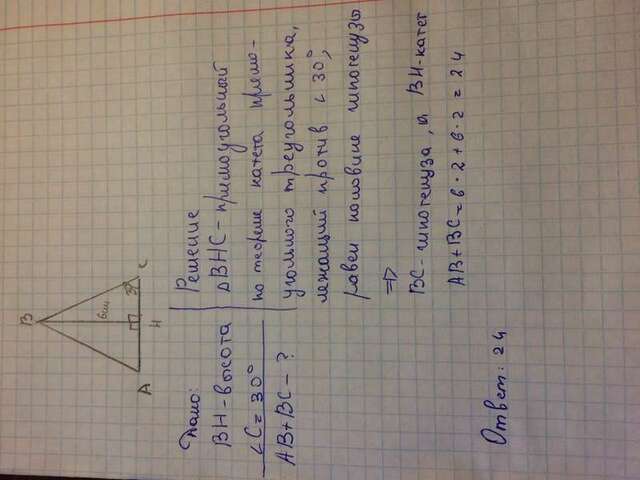 B
6см
30°
A
H
C
Дано:
BH-высота
∠C = 30°
AB+BC - ?
Решение
ΔBHC - прямоугольный
по теореме катета прямо-
угольного треугольника,
лежащий против ∠30°,
равен половине гипотенузы
⇒
BC - гипотенуза, а BH-катет
AB+BC = 6·2+6·2 = 24
Ответ: 24